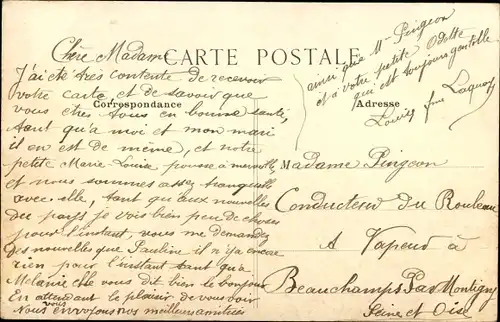 CARTE POSTALE
Correspondance
Adresse
Chère Madame
J'ai été très contente de recevoir
votre carte et de savoir que
vous êtes tous en bonne santé,
tant qu'a moi et mon mari
il en est de même, et notre
petite Marie-Louise pousse a merveille,
et nous sommes assez tranquille
avec elle, tant qu'aux nouvelles
du pays je vois bien peu de choses
pour l'instant, vous me demandez
des nouvelles que Pauline il n'y a encore
rien pour l'instant tant qu'a
Mélanie elle vous dit bien le bonjour
En attendant le plaisir de vous voir
Nous vous envoyons nos meilleurs amitiés
ainsi qu'a Mr Pingeon
et a votre petite Odette
qui est toujours gentille
Louise fme
Madame Pingeon
Conducteur du Rouleau
A Vapeur à
Beauchamps Par Montigny
Seine et Oise